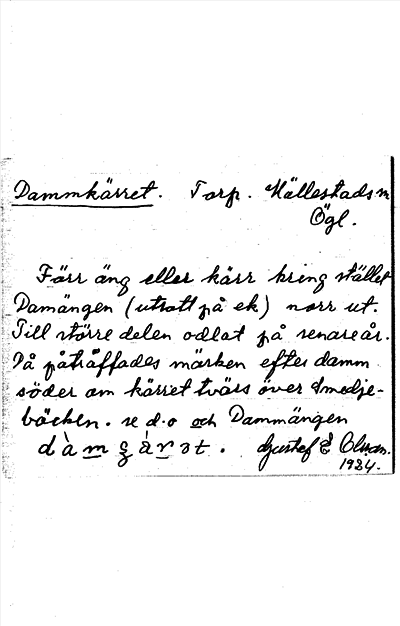 Dammkärret. Torp. Hällestads m
Ögl.
Förr äng eller kärr kring stället
Damängen (uttalt på ek.) norr ut.
Till större delen odlat på senare år.
Då påträffades märken efter damm
söder om kärret tvärs över Smedje-
bäcken. se d.o och Dammängen
Gustef E Olsson.
1934.